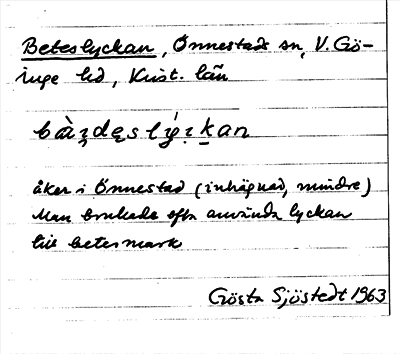 Beteslyckan, Önnestads sn, V. Gö-
inge hd, Krist. län
åker i Önnestad (inhägnad, mindre)
Man brukade ofta använda lyckan
till betesmark
Gösta Sjöstedt 1963